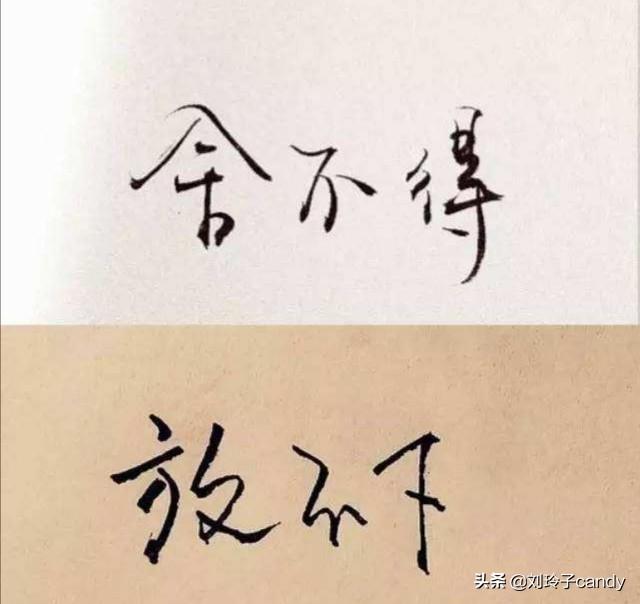 舍不得
放不下
头条 @刘玲子candy